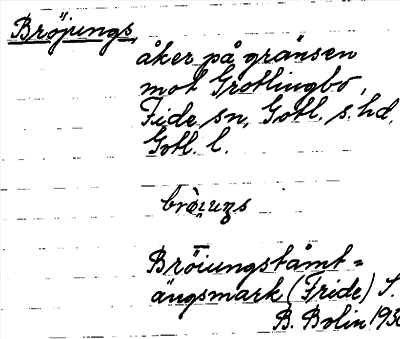 Bröjungs,
åker på gränsen
mot Grötlingbo,
Fide sn, Gotl. s. hd,
Gotl. l.
Bröiungståmt =
ängsmark (Fride) S.
B. Bolin 193